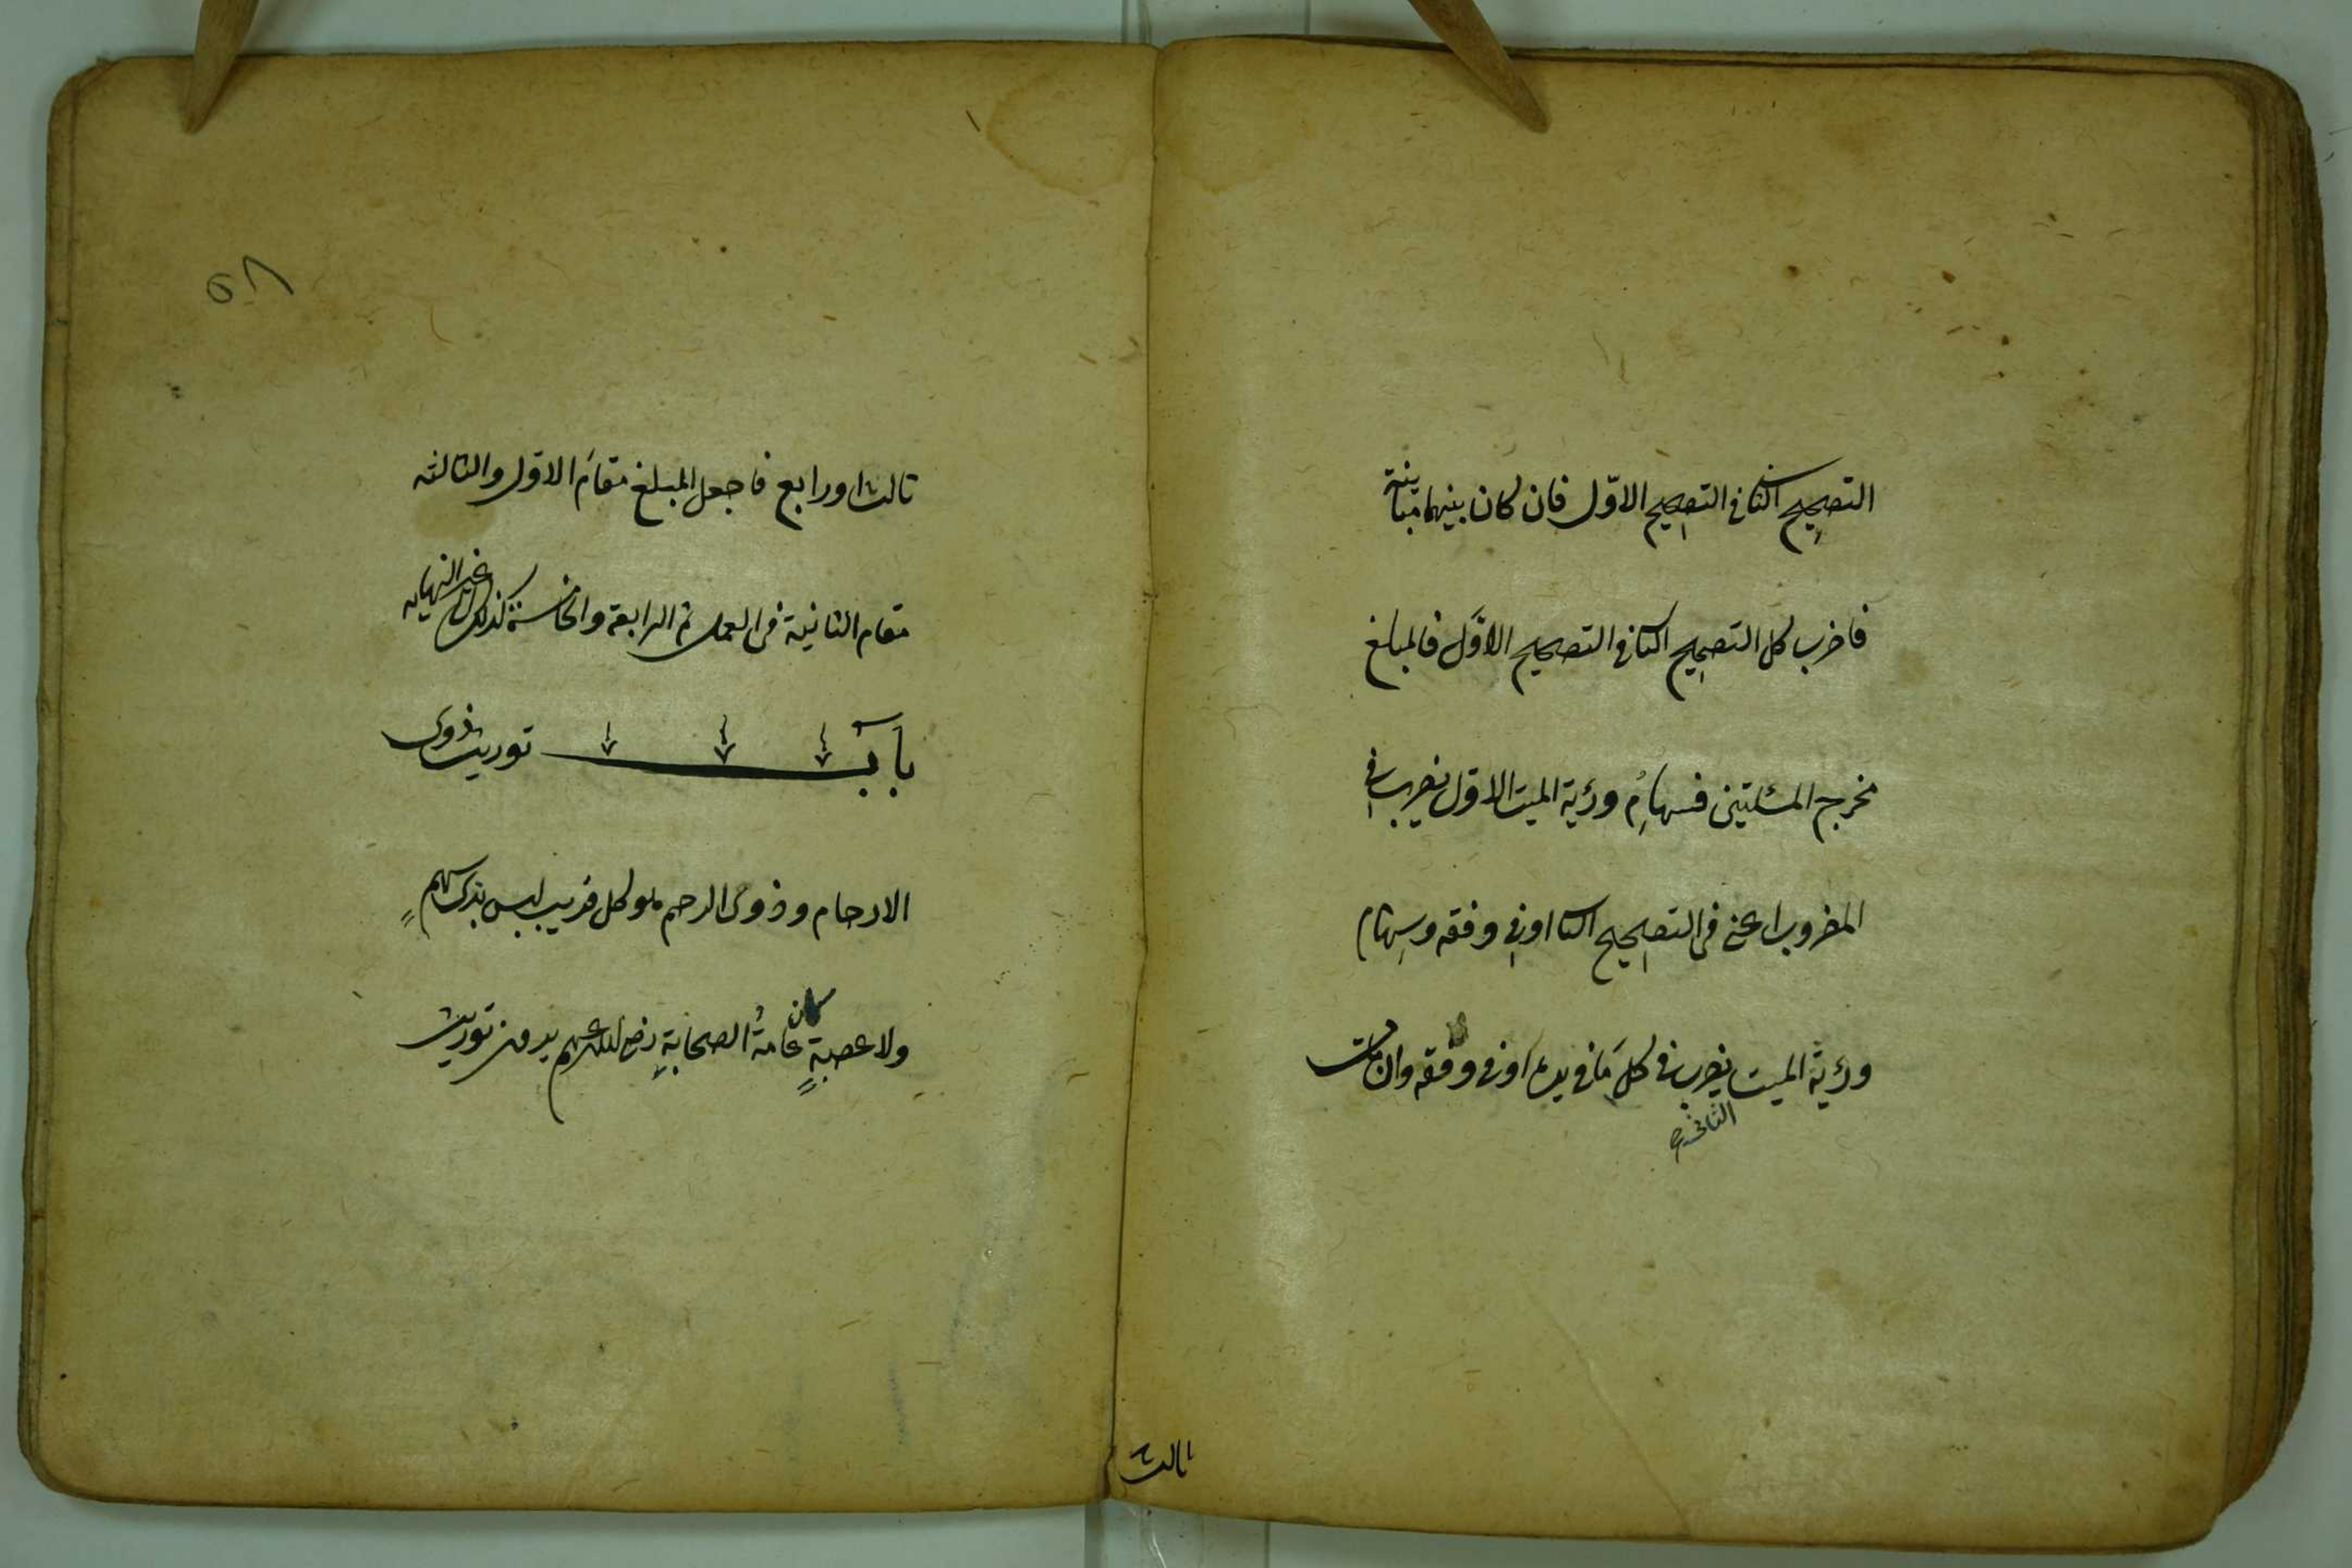 التصحيح الثاني في التصحيح الاوّل فان كان بينهما مباينة
فاضرب كل التصحيح الثاني في التصحيح الاوّل فالمبلغ
مخرج المسئلتين فسهامُ ورثة الميت الاوّل يضرب في
المضروب اعني في التصحيح الثا او في وفقه وسهام
ورثة الميت يضرب في كل مَا في يده او في وفقه وان مات
الثاني صح
ثالث
٥٨
ثالث او رابع فاجعل المبلغ مقامَ الاوّل والثالثه
مقام الثانية في العمل ثم الرابعة والخامسة كذلك الى غير النهايه
بابٌ توريث ذوى
الارحام وذوى الرحم هو كل قريب ليس بذى سهمٍ
ولا عصبةٍ كان عامةُ الصحابةِ رضى الله عنهم يرون توريث